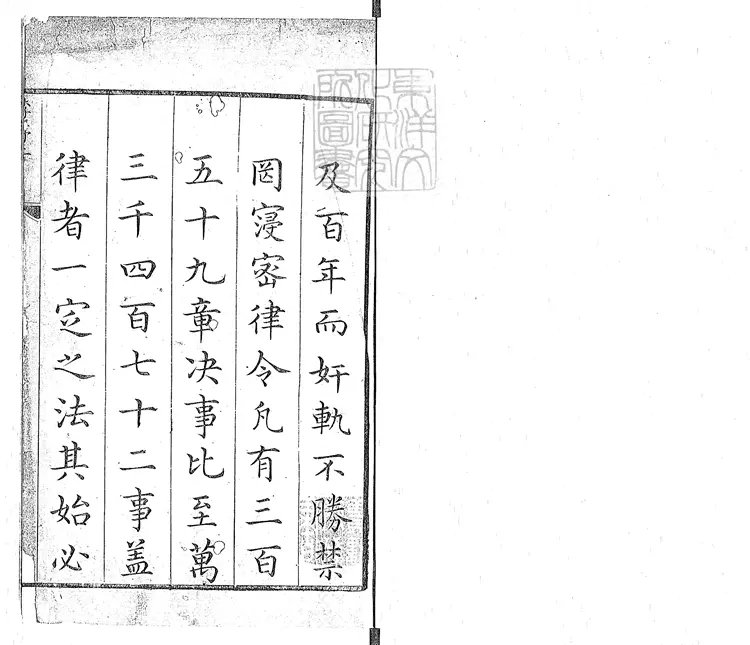 及百年而奸軌不勝禁
罔寖密律令凡有三百
五十九章决事比至萬
三千四百七十二事盖
律者一定之法其始必